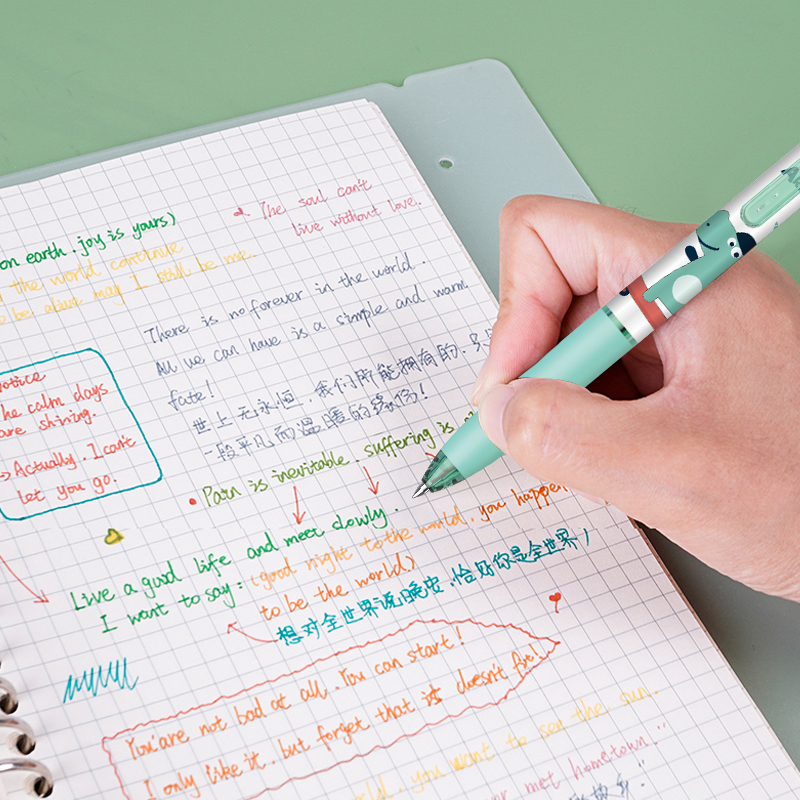 The soul can't
live without love.
on earth. joy is yours)
the world continue
to be alive may I still be me.
There is no forever in the world.
All we can have is a simple and warm
fate!
世上无永恒,我们所能拥有的,只
一段平凡而温暖的缘份!
Notice
The calm days
are shining.
→Actually. I can't
let you go.
Pain is inevitable. suffering is
Live a good life and meet slowly.
I want to say:(good night to the world. you happen
to be the world)
想对全世界说晚安,恰好你是全世界!
You're not bad at all. You can start!
I only like it. but forget that it doesn't fit!
world. you want to see the sun.
met hometown."